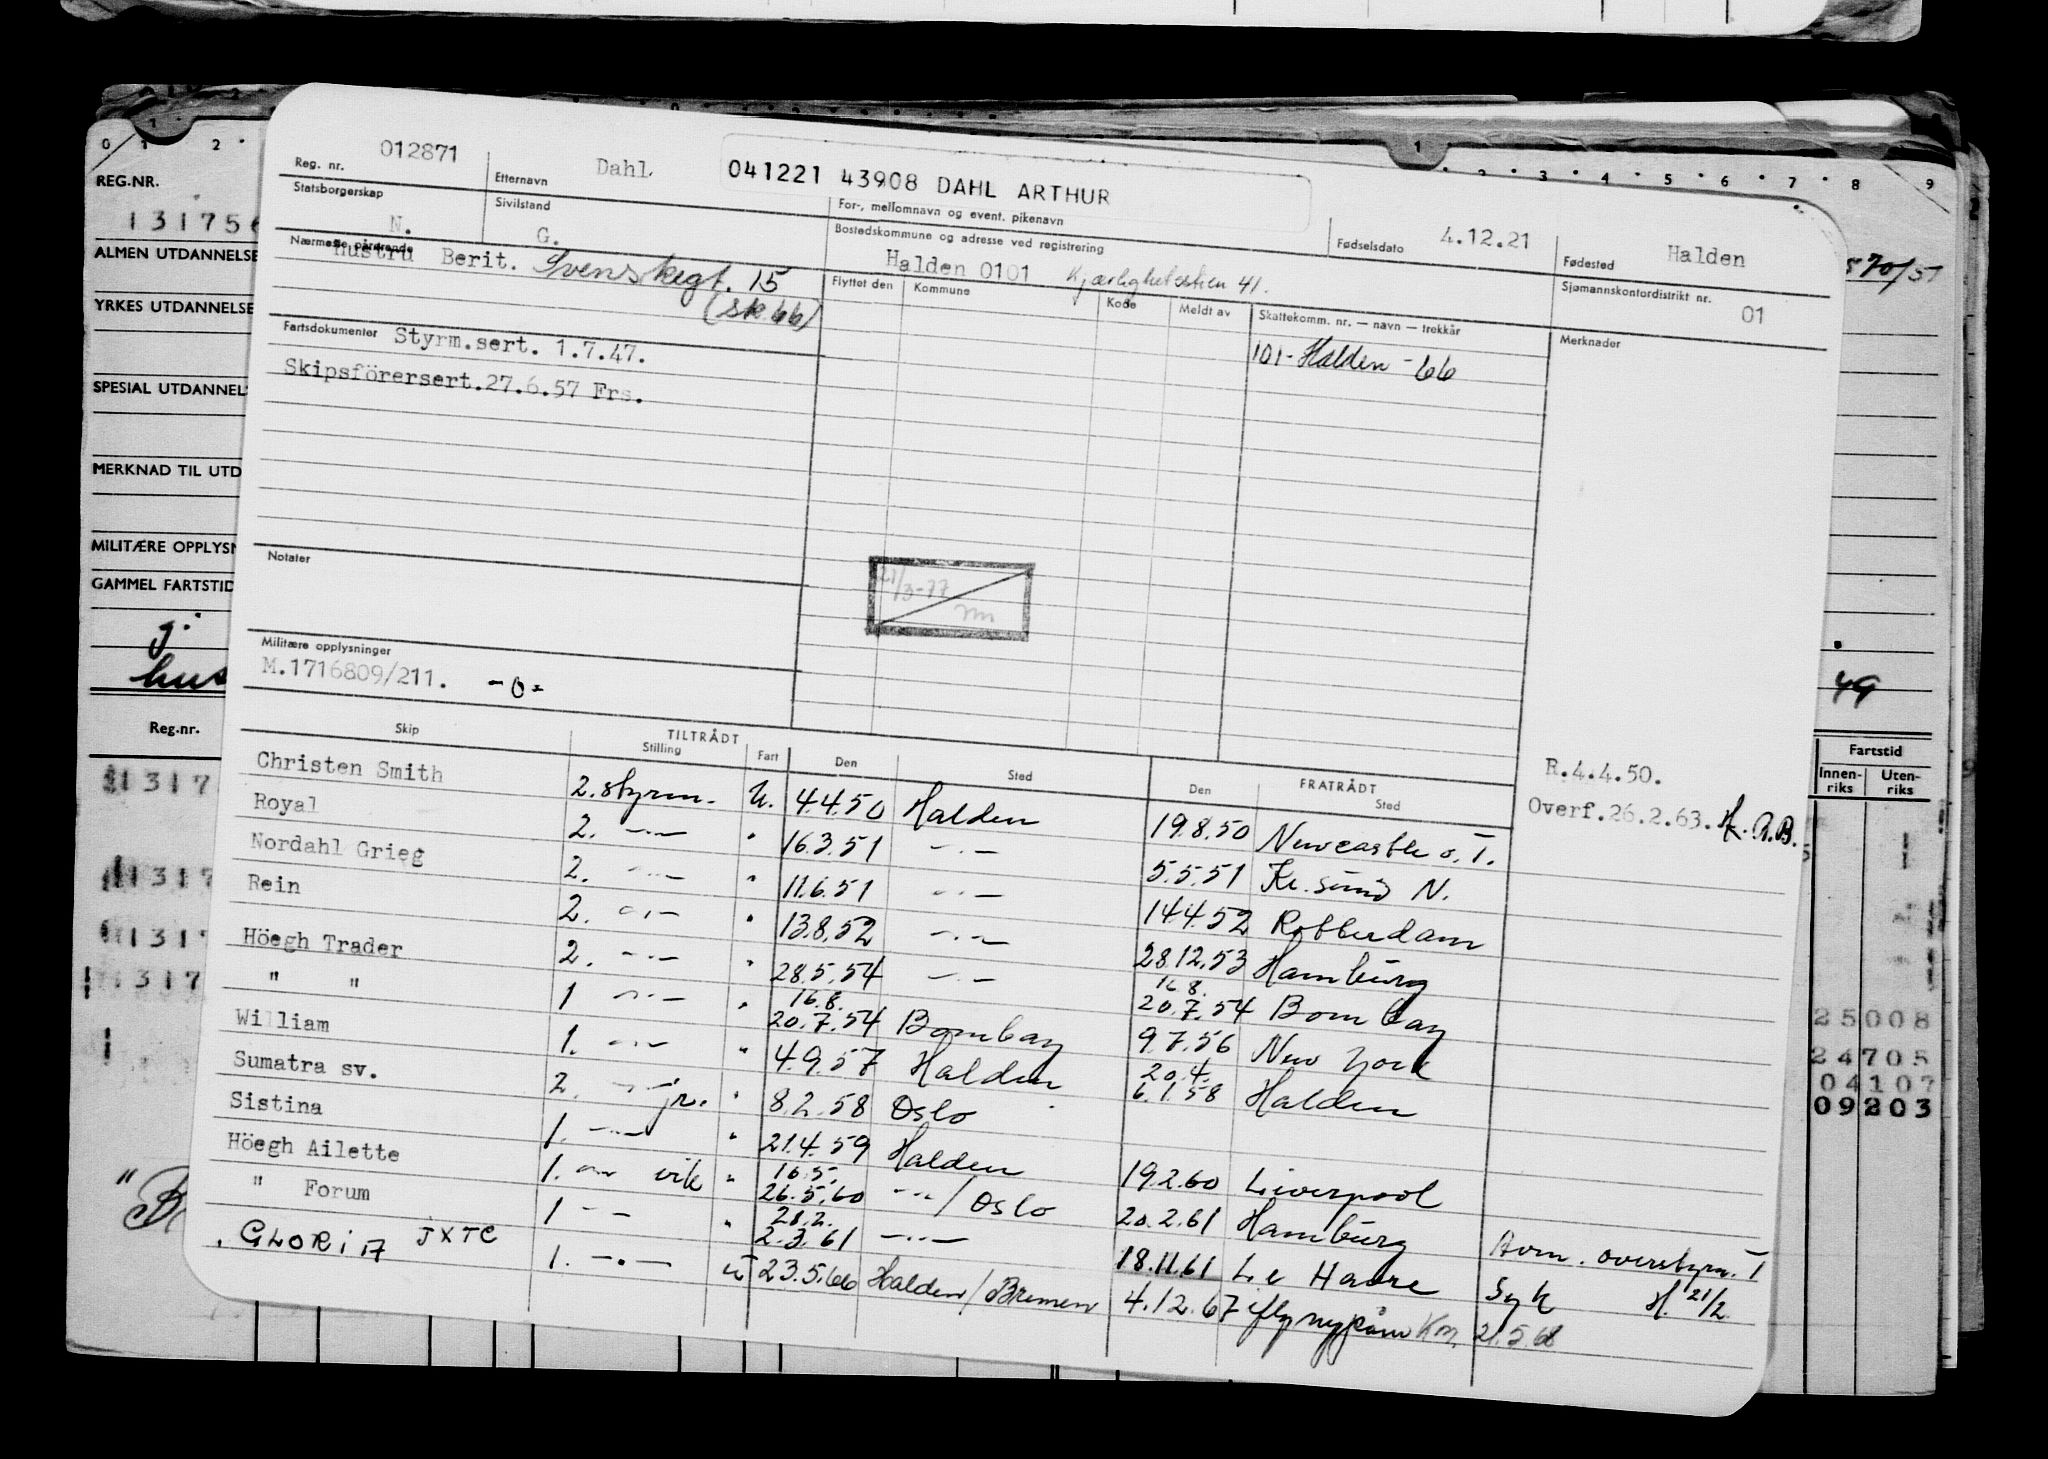 012871 Dahl 041221 43908 DAHL ARTHUR
Reg. nr. Etternavn For-, mellomnavn og event. pikenavn Fødselsdato 4.12.21 Fødested Halden
Statsborgerskap N. Sivilstand G. Bostedskommune og adresse ved registrering Halden 0101 Kjærlighetsstien 41. Sjømannskontordistrikt nr. 01
Nærmeste pårørende Hustru Berit. Svenskegt. 15
(sk 66)
Flyttet den Kommune Kode Meldt av Skattekomm. nr. — navn — trekkår Merknader
101-Halden -66
Fartsdokumenter Styrm.sert. 1.7.47.
Skipsförersert.27.6.57 Frs.
Notater
21/3-77
Militære opplysninger
M.1716809/211. -0-
TILTRÅDT FRATRÅDT
Skip Stilling Fart Den Sted Den Sted
R.4.4.50.
Overf.26.2.63. H. A.B.
Christen Smith 2. styrm. U. 4.4.50 Halden 19.8.50 Newcastle o. T.
Royal 2. -"- " 16.3.51 -"- 5.5.51 Kr. sund N.
Nordahl Grieg 2. -"- " 11.6.51 -"- 14.4.52 Rotterdam
Rein 2. -"- " 13.8.52 -"- 28.12.53 Hamburg
Höegh Trader 2. -"- " 28.5.54 -"- 16.8. 20.7.54 Bombay
" " 1 -"- " 16.8. 20.7.54 Bombay 9.7.56 New York
William 1. -"- " 4.9.57 Halden 20.4. 6.1.58 Halden
Sumatra sv. 2. -"- jr. " 8.2.58 Oslo
Sistina 1. -"- " 21.4.59 Halden 19.2.60 Liverpool
Höegh Ailette 1. -"- vik " 16.5. 26.5.60 -"- / Oslo 20.2.61 Hamburg Avm. overstyrm. I
" Forum 1 -"- " 28.2. 2.3.61 -"- 18.11.61 Le Havre Syk H. 21/2
GLORIA JXTC 1. -"- U 23.5.66 Halden/Bremen 4.12.67 Km. 21.5.68
REG.NR.
131756
ALMEN UTDANNELSE
YRKES UTDANNELSE
SPESIAL UTDANNELS
MERKNAD TIL UTD
MILITÆRE OPPLYSN
GAMMEL FARTSTID
hus
Reg.nr.
570/51
49
Fartstid
Innen-riks Uten-riks
25008
24705
04107
09203